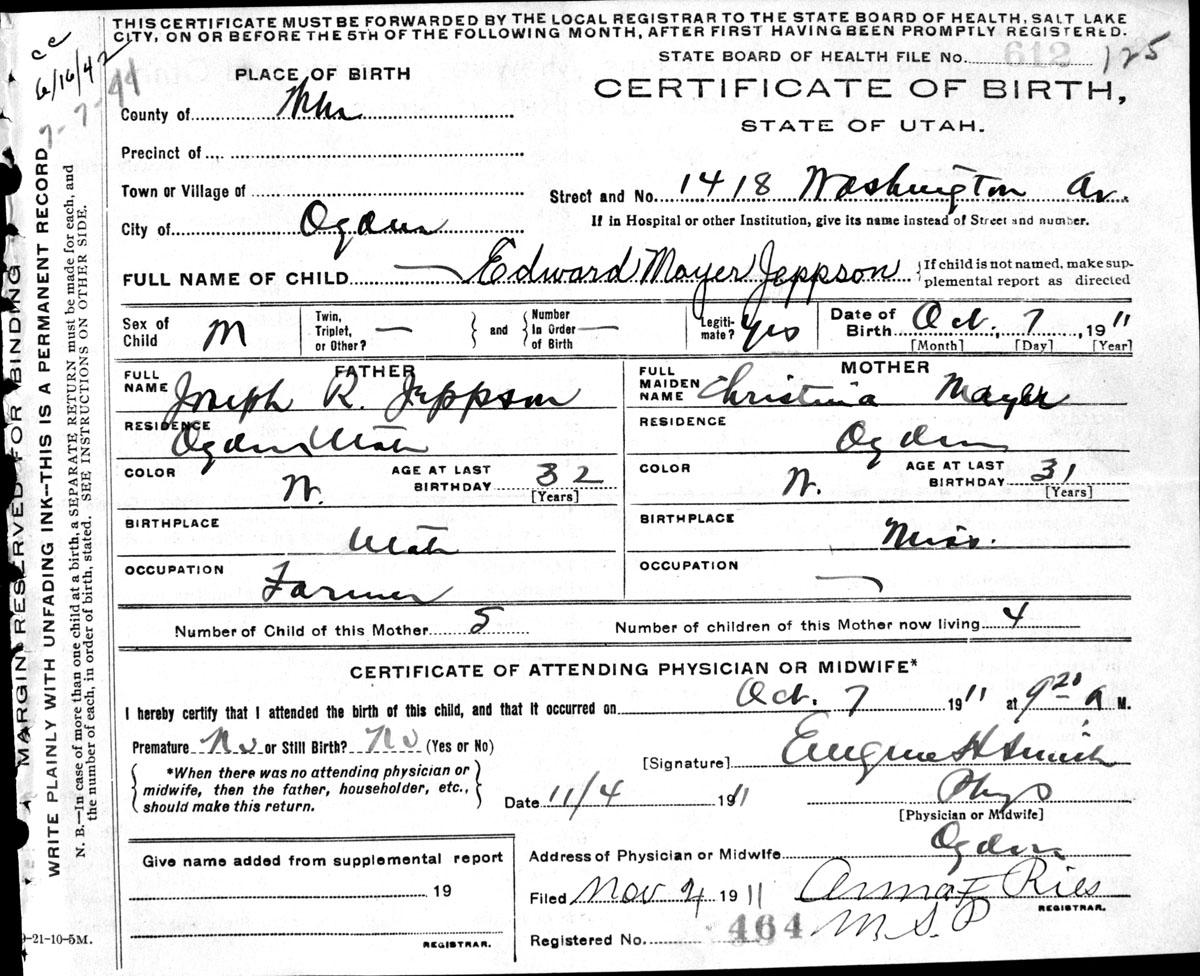 THIS CERTIFICATE MUST BE FORWARDED BY THE LOCAL REGISTRAR TO THE STATE BOARD OF HEALTH, SALT LAKE
CITY, ON OR BEFORE THE 5TH OF THE FOLLOWING MONTH, AFTER FIRST HAVING BEEN PROMPTLY REGISTERED.
cc
6/16/42
7-7-41
STATE BOARD OF HEALTH FILE No. 612 125
PLACE OF BIRTH
CERTIFICATE OF BIRTH,
STATE OF UTAH.
County of
Precinct of
Town or Village of
Street and No. 1418 Washington Av.
City of Ogden
If in Hospital or other Institution, give its name instead of Street and number.
FULL NAME OF CHILD Edward Mayer Jeppson {If child is not named, make sup-
plemental report as directed
Sex of Child M
Twin, Triplet, or Other? — } and { Number In Order of Birth —
Legiti-mate? Yes
Date of Birth Oct. 7, 1911
[Month] [Day] [Year]
FATHER
FULL NAME Joseph R. Jeppson
RESIDENCE Ogden Utah
COLOR W. AGE AT LAST BIRTHDAY 32
[Years]
BIRTHPLACE Utah
OCCUPATION Farmer
MOTHER
FULL MAIDEN NAME Christina Mayer
RESIDENCE Ogden
COLOR W. AGE AT LAST BIRTHDAY 31
[Years]
BIRTHPLACE Miss.
OCCUPATION —
Number of Child of this Mother 5 Number of children of this Mother now living 4
CERTIFICATE OF ATTENDING PHYSICIAN OR MIDWIFE*
I hereby certify that I attended the birth of this child, and that it occurred on Oct. 7 1911 at 9 20 a M.
Premature No or Still Birth? No (Yes or No)
[Signature] Eugene H Smith
{ *When there was no attending physician or
midwife, then the father, householder, etc.,
should make this return. }
Date 11/4 1911
Phys
[Physician or Midwife]
Give name added from supplemental report
19
REGISTRAR.
Address of Physician or Midwife Ogden
Filed Nov 4 1911
REGISTRAR.
Registered No. 464
MARGIN RESERVED FOR BINDING
WRITE PLAINLY WITH UNFADING INK—THIS IS A PERMANENT RECORD
N. B.—In case of more than one child at a birth, a SEPARATE RETURN must be made for each, and
the number of each, in order of birth, stated. SEE INSTRUCTIONS ON OTHER SIDE.
-21-10-5M.